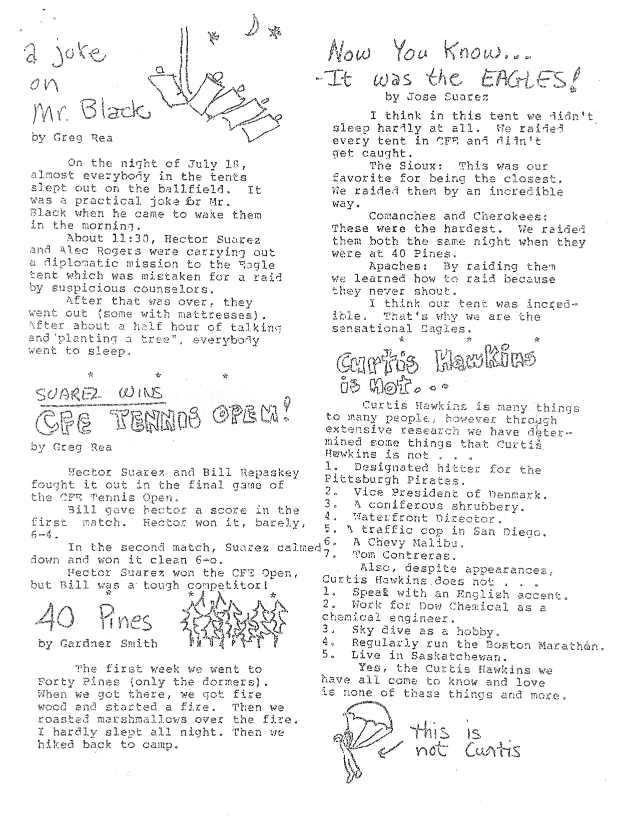 a joke
on
Mr. Black
by Greg Rea
On the night of July 18,
almost everybody in the tents
slept out on the ballfield. It
was a practical joke for Mr.
Black when he came to wake them
in the morning.
About 11:30, Hector Suarez
and Alec Rogers were carrying out
a diplomatic mission to the Eagle
tent which was mistaken for a raid
by suspicious counselors.
After that was over, they
went out (some with mattresses).
After about a half hour of talking
and "planting a tree", everybody
went to sleep.
* * *
SUAREZ WINS
CFE TENNIS OPEN!
by Greg Rea
Hector Suarez and Bill Repaskey
fought it out in the final game of
the CFE Tennis Open.
Bill gave hector a score in the
first match. Hector won it, barely,
6-4.
In the second match, Suarez calmed
down and won it clean 6-0.
Hector Suarez won the CFE Open,
but Bill was a tough competitor!
* * *
40 Pines
by Gardner Smith
The first week we went to
Forty Pines (only the dormers).
When we got there, we got fire
wood and started a fire. Then we
roasted marshmallows over the fire.
I hardly slept all night. Then we
hiked back to camp.
Now You Know...
-It was the EAGLES!
by Jose Suarez
I think in this tent we didn't
sleep hardly at all. We raided
every tent in CFE and didn't
get caught.
The Sioux: This was our
favorite for being the closest.
We raided them by an incredible
way.
Comanches and Cherokees:
These were the hardest. We raided
them both the same night when they
were at 40 Pines.
Apaches: By raiding them
we learned how to raid because
they never shout.
I think our tent was incred-
ible. That's why we are the
sensational Eagles.
* * *
Curtis Hawkins
is Not...
Curtis Hawkins is many things
to many people, however through
extensive research we have deter-
mined some things that Curtis
Hawkins is not . . .
1. Designated hitter for the
Pittsburgh Pirates.
2. Vice President of Denmark.
3. A coniferous shrubbery.
4. Waterfront Director.
5. A traffic cop in San Diego.
6. A Chevy Malibu.
7. Tom Contreras.
Also, despite appearances,
Curtis Hawkins does not . . .
1. Speak with an English accent.
2. Work for Dow Chemical as a
chemical engineer.
3. Sky dive as a hobby.
4. Regularly run the Boston Marathon.
5. Live in Saskatchewan.
Yes, the Curtis Hawkins we
have all come to know and love
is none of these things and more.
this is
not Curtis